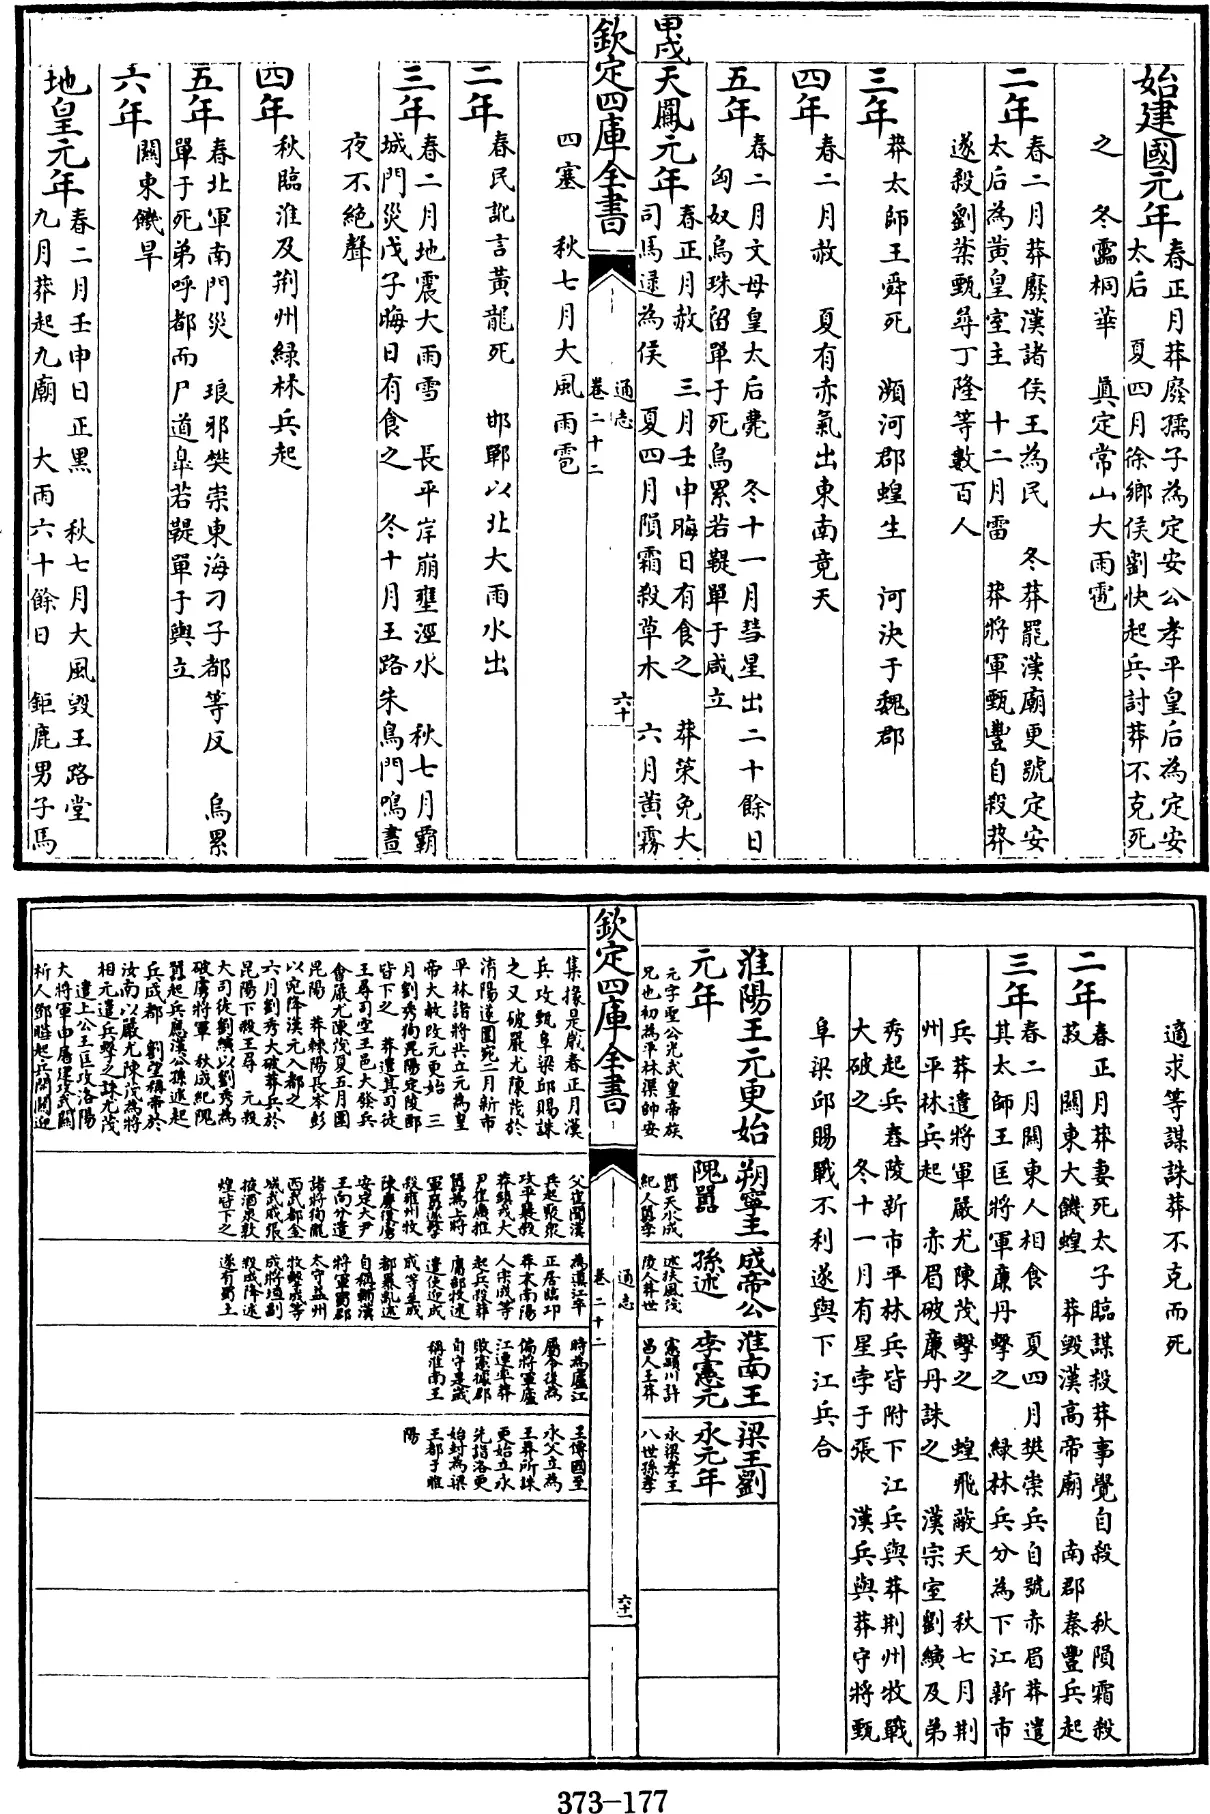 始建國元年
春正月莽廢孺子為定安公孝平皇后為定安
太后 夏四月徐鄉侯劉快起兵討莽不克死
之 冬靁桐華 真定常山大雨雹
二年
春二月莽廢漢諸侯王為民 冬莽罷漢廟更號定安
太后為黃皇室主 十二月雷 莽將軍甄豐自殺莽
遂殺劉棻甄尋丁隆等數百人
三年
莽太師王舜死 瀕河郡蝗生 河決于魏郡
四年
春二月赦 夏有赤氣出東南竟天
五年
春二月文母皇太后薨 冬十一月彗星出二十餘日
匈奴烏珠留單于死烏累若鞮單于咸立
甲戌
天鳳元年
春正月赦 三月壬申晦日有食之 莽策免大
司馬逯為侯 夏四月隕霜殺草木 六月黃霧
欽定四庫全書
通志
卷二十二
六十
四塞 秋七月大風雨雹
二年
春民訛言黃龍死 邯鄲以北大雨水出
三年
春二月地震大雨雪 長平岸崩壅涇水 秋七月霸
城門災戊子晦日有食之 冬十月王路朱鳥門鳴晝
夜不絕聲
四年
秋臨淮及荆州緑林兵起
五年
春北軍南門災 琅邪樊崇東海刁子都等反 烏累
單于死弟呼都而尸道臯若鞮單于輿立
六年
關東饑旱
地皇元年
春二月壬申日正黑 秋七月大風毀王路堂
九月莽起九廟 大雨六十餘日 鉅鹿男子馬
適求等謀誅莽不克而死
二年
春正月莽妻死太子臨謀殺莽事覺自殺 秋隕霜殺
菽 關東大饑蝗 莽毀漢高帝廟 南郡秦豐兵起
三年
春二月關東人相食 夏四月樊崇兵自號赤眉莽遣
其太師王匡將軍亷丹擊之 緑林兵分為下江新市
兵莽遣將軍嚴尤陳茂擊之 蝗飛蔽天 秋七月荆
州平林兵起 赤眉破亷丹誅之 漢宗室劉縯及弟
秀起兵舂陵新市平林兵皆附下江兵與莽荆州牧戰
大破之 冬十一月有星孛于張 漢兵與莽守將甄
阜梁邱賜戰不利遂與下江兵合
淮陽王元更始
元年
元字聖公光武皇帝族
兄也初為平林渠帥安
朔寧王
隗囂
囂天水成
紀人囂季
成帝公
孫述
述扶風茂
陵人莽世
淮南王
李憲元
憲潁川許
昌人王莽
梁王劉
永元年
永梁孝王
八世孫孝
欽定四庫全書
通志
卷二十二
六十一
集掾是歲春正月漢
兵攻甄阜梁邱賜誅
之又破嚴尤陳茂於
淯陽遂圍宛二月新市
平林諸將共立元為皇
帝大赦改元更始 三
月劉秀徇昆陽定陵郾
皆下之 莽遣其司徒
王尋司空王邑大發兵
會嚴尤陳茂夏五月圍
昆陽 莽棘陽長岑彭
以宛降漢元入都之
六月劉秀大破莽兵於
昆陽下殺王尋 元殺
大司徒劉縯以劉秀為
破虜將軍 秋成紀隗
囂起兵應漢公孫述起
兵成都 劉望稱帝於
汝南以嚴尤陳茂為將
相元遣兵擊之誅尤茂
遣上公王匡攻洛陽
大將軍申屠建攻武關
析人鄧曄起兵開關迎
父崔聞漢
兵起聚衆
攻平襄殺
莽鎮戎大
尹崔廣推
囂為上將
軍囂遂擊
殺雍州牧
陳慶復虜
安定大尹
王向分遣
諸將徇隴
西武都金
城武威張
掖酒泉敦
煌皆下之
為導江卒
正居臨邛
莽末南陽
人宗成等
起兵殺莽
庸部牧述
遣使迎成
成等至成
都暴亂述
自稱輔漢
將軍蜀郡
太守益州
牧擊成等
成將垣副
殺成降述
遂有蜀土
時為廬江
屬令後為
偏將軍廬
江連率莽
敗憲據郡
自守是歲
稱淮南王
王傳國至
永父立為
王莽所誅
更始立永
先詣洛更
始封為梁
王都于睢
陽
373-177